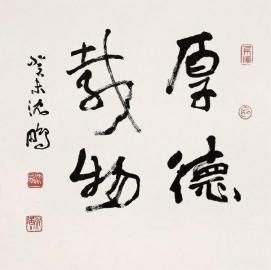 厚德
载物
癸未沈鹏